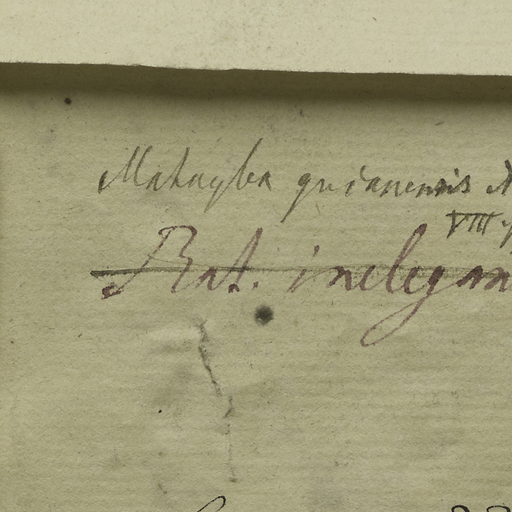 Matayba guianensis A
VIII
Rat. inelegan